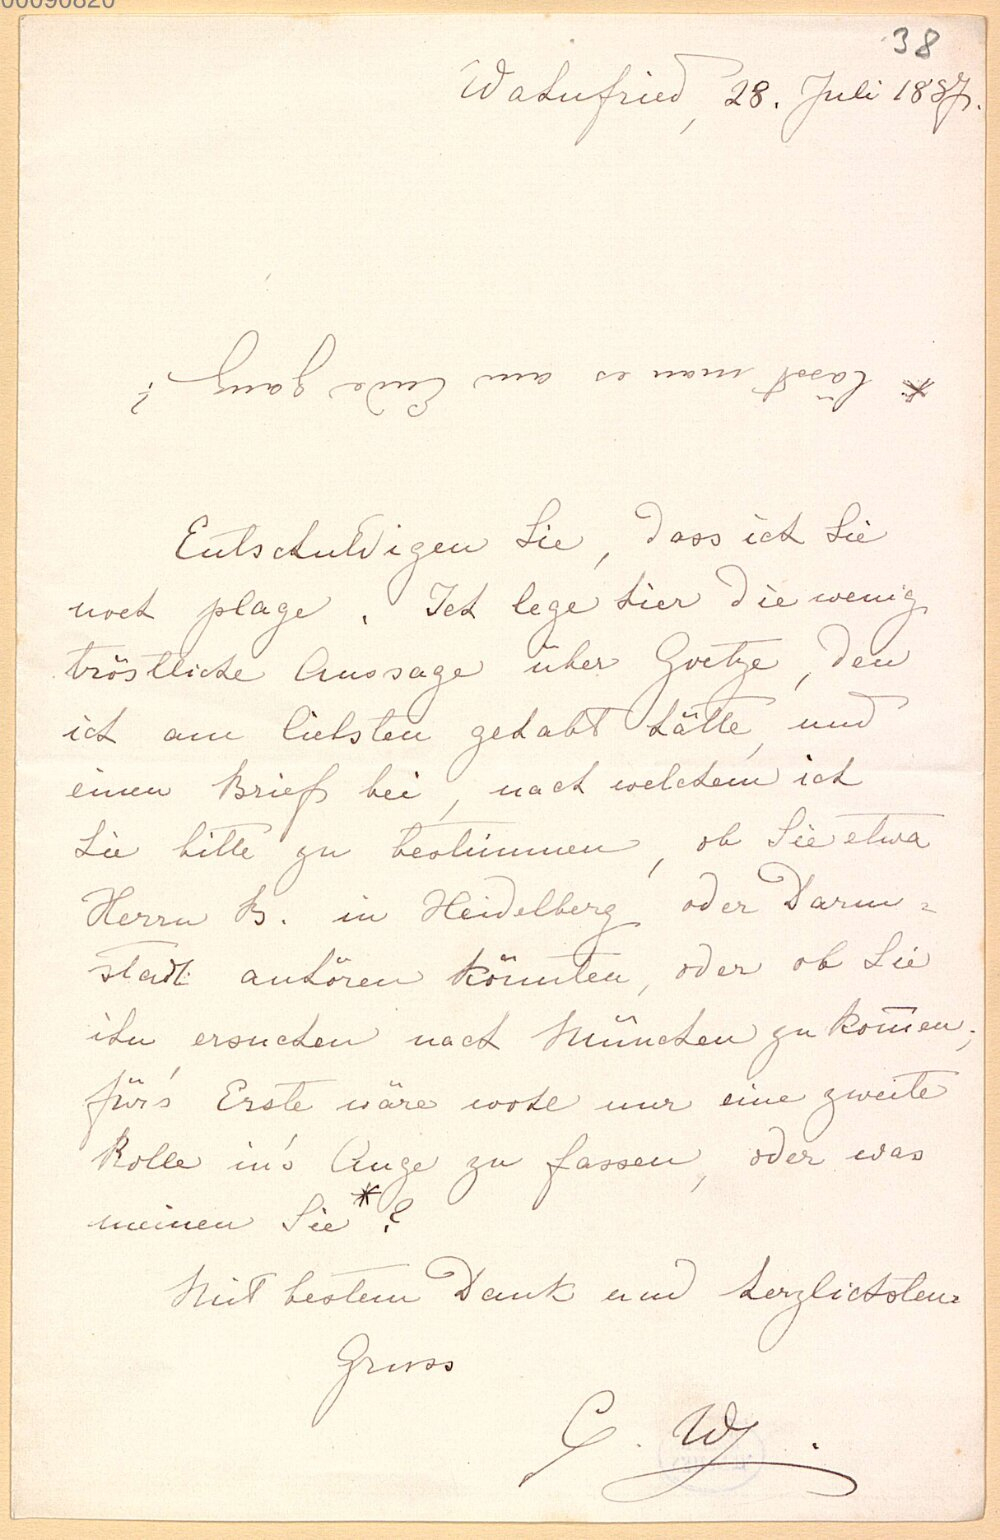 00090820
38
Wahnfried, 28. Juli 1887.
* lässt man es am Ende ganz?
Entschuldigen Sie, dass ich Sie
noch plage. Ich lege hier die wenig
tröstliche Aussage über Goetze, den
ich am liebsten gehabt hätte, und
einen Brief bei, nach welchem ich
Sie bitte zu bestimmen, ob Sie etwa
Herrn B. in Heidelberg oder Darm=
stadt anhören könnten, oder ob Sie
ihn ersuchen nach München zu kom̄en;
für's Erste wäre wohl nur eine zweite
Rolle in's Auge zu fassen, oder was
meinen Sie*?
Mit bestem Dank und herzlichsten
Gruss
C. W.